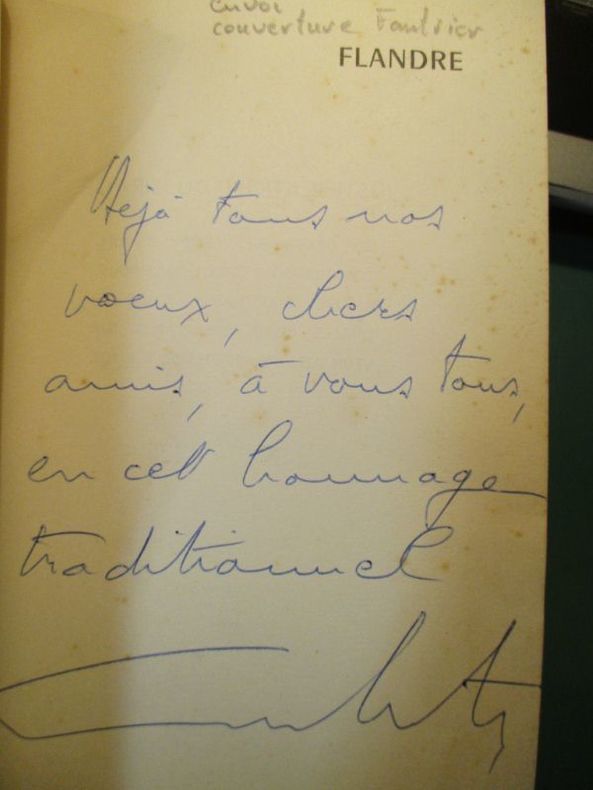 envoi
couverture Fautrier
FLANDRE
Déjà tous nos
voeux, chers
amis, à vous tous,
en cet hommage
traditionnel